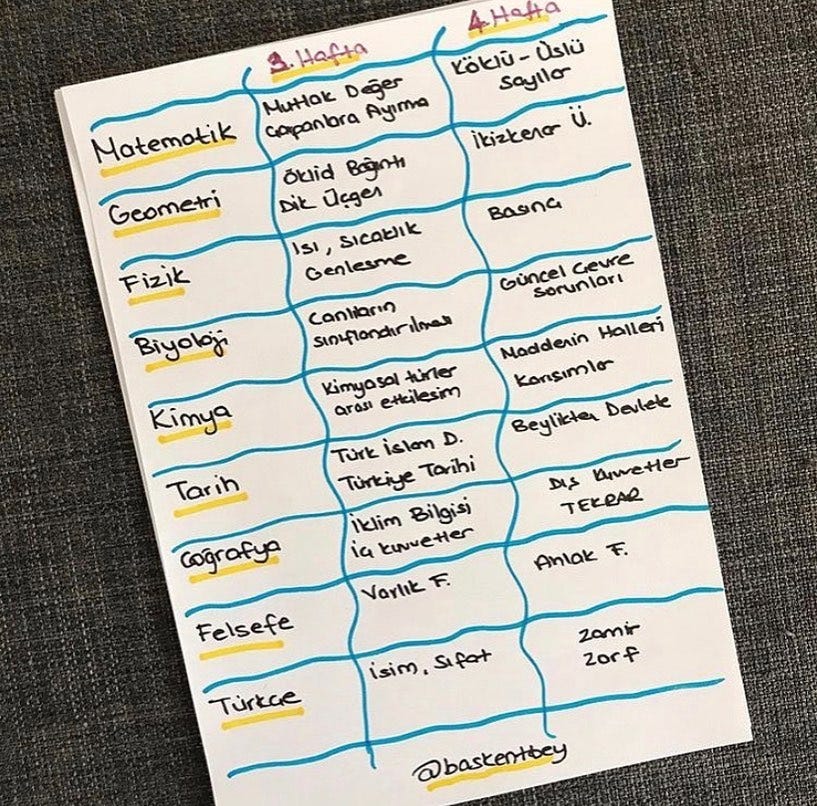 3. Hafta
4. Hafta
Matematik
Mutlak Değer
Çarpanlara Ayırma
Köklü - Üslü
Sayılar
Geometri
Öklid Bağıntı
Dik Üçgen
İkizkenar Ü.
Fizik
Isı, Sıcaklık
Genleşme
Basınç
Biyoloji
Canlıların
sınıflandırılması
Güncel Çevre
Sorunları
Kimya
Kimyasal türler
arası etkileşim
Maddenin Halleri
Karışımlar
Tarih
Türk İslam D.
Türkiye Tarihi
Beylikten Devlete
Coğrafya
İklim Bilgisi
İç kuvvetler
Dış kuvvetler
TEKRAR
Felsefe
Varlık F.
Ahlak F.
Türkçe
İsim, Sıfat
Zamir
Zarf
@baskentbey